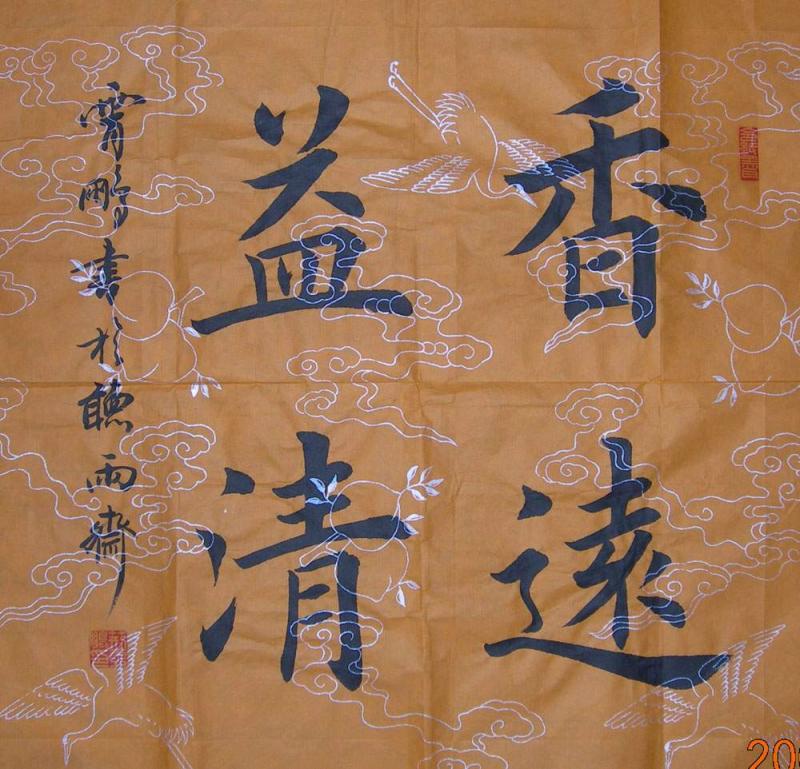 香遠
益清
霄鵬書於聽雨齋
20